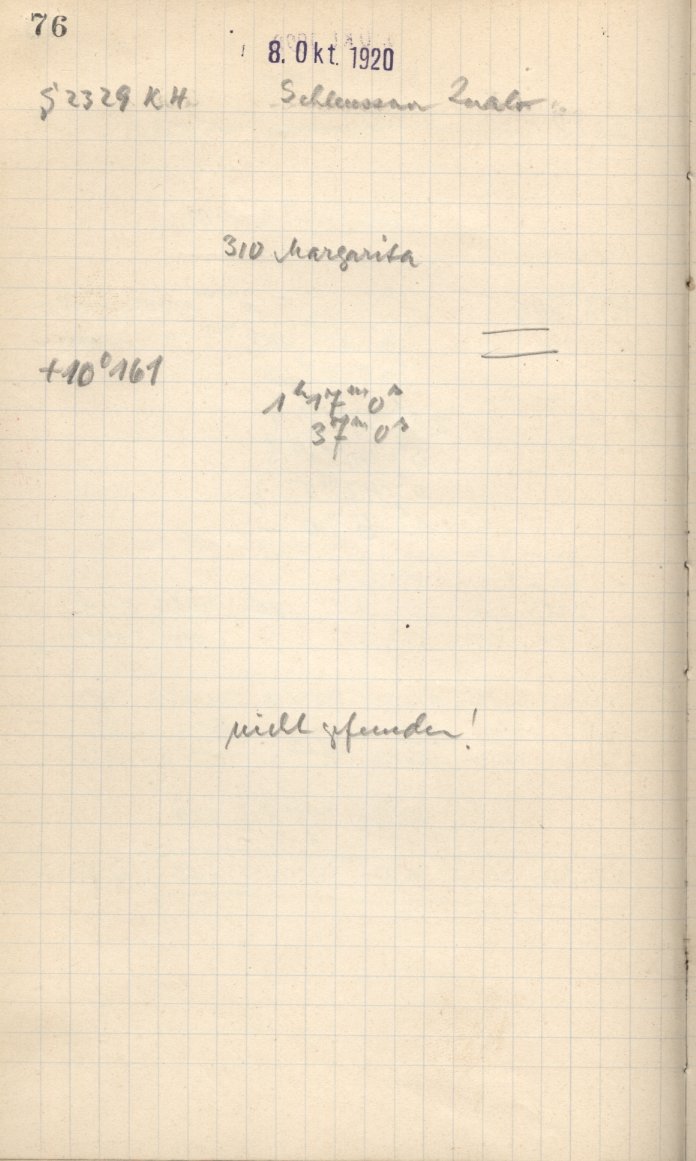 76
8. Okt. 1920
2329 KH Schleussner
310 Margarita
+10°161
1ʰ17ᵐ0ˢ
37ᵐ0ˢ
nicht gefunden!